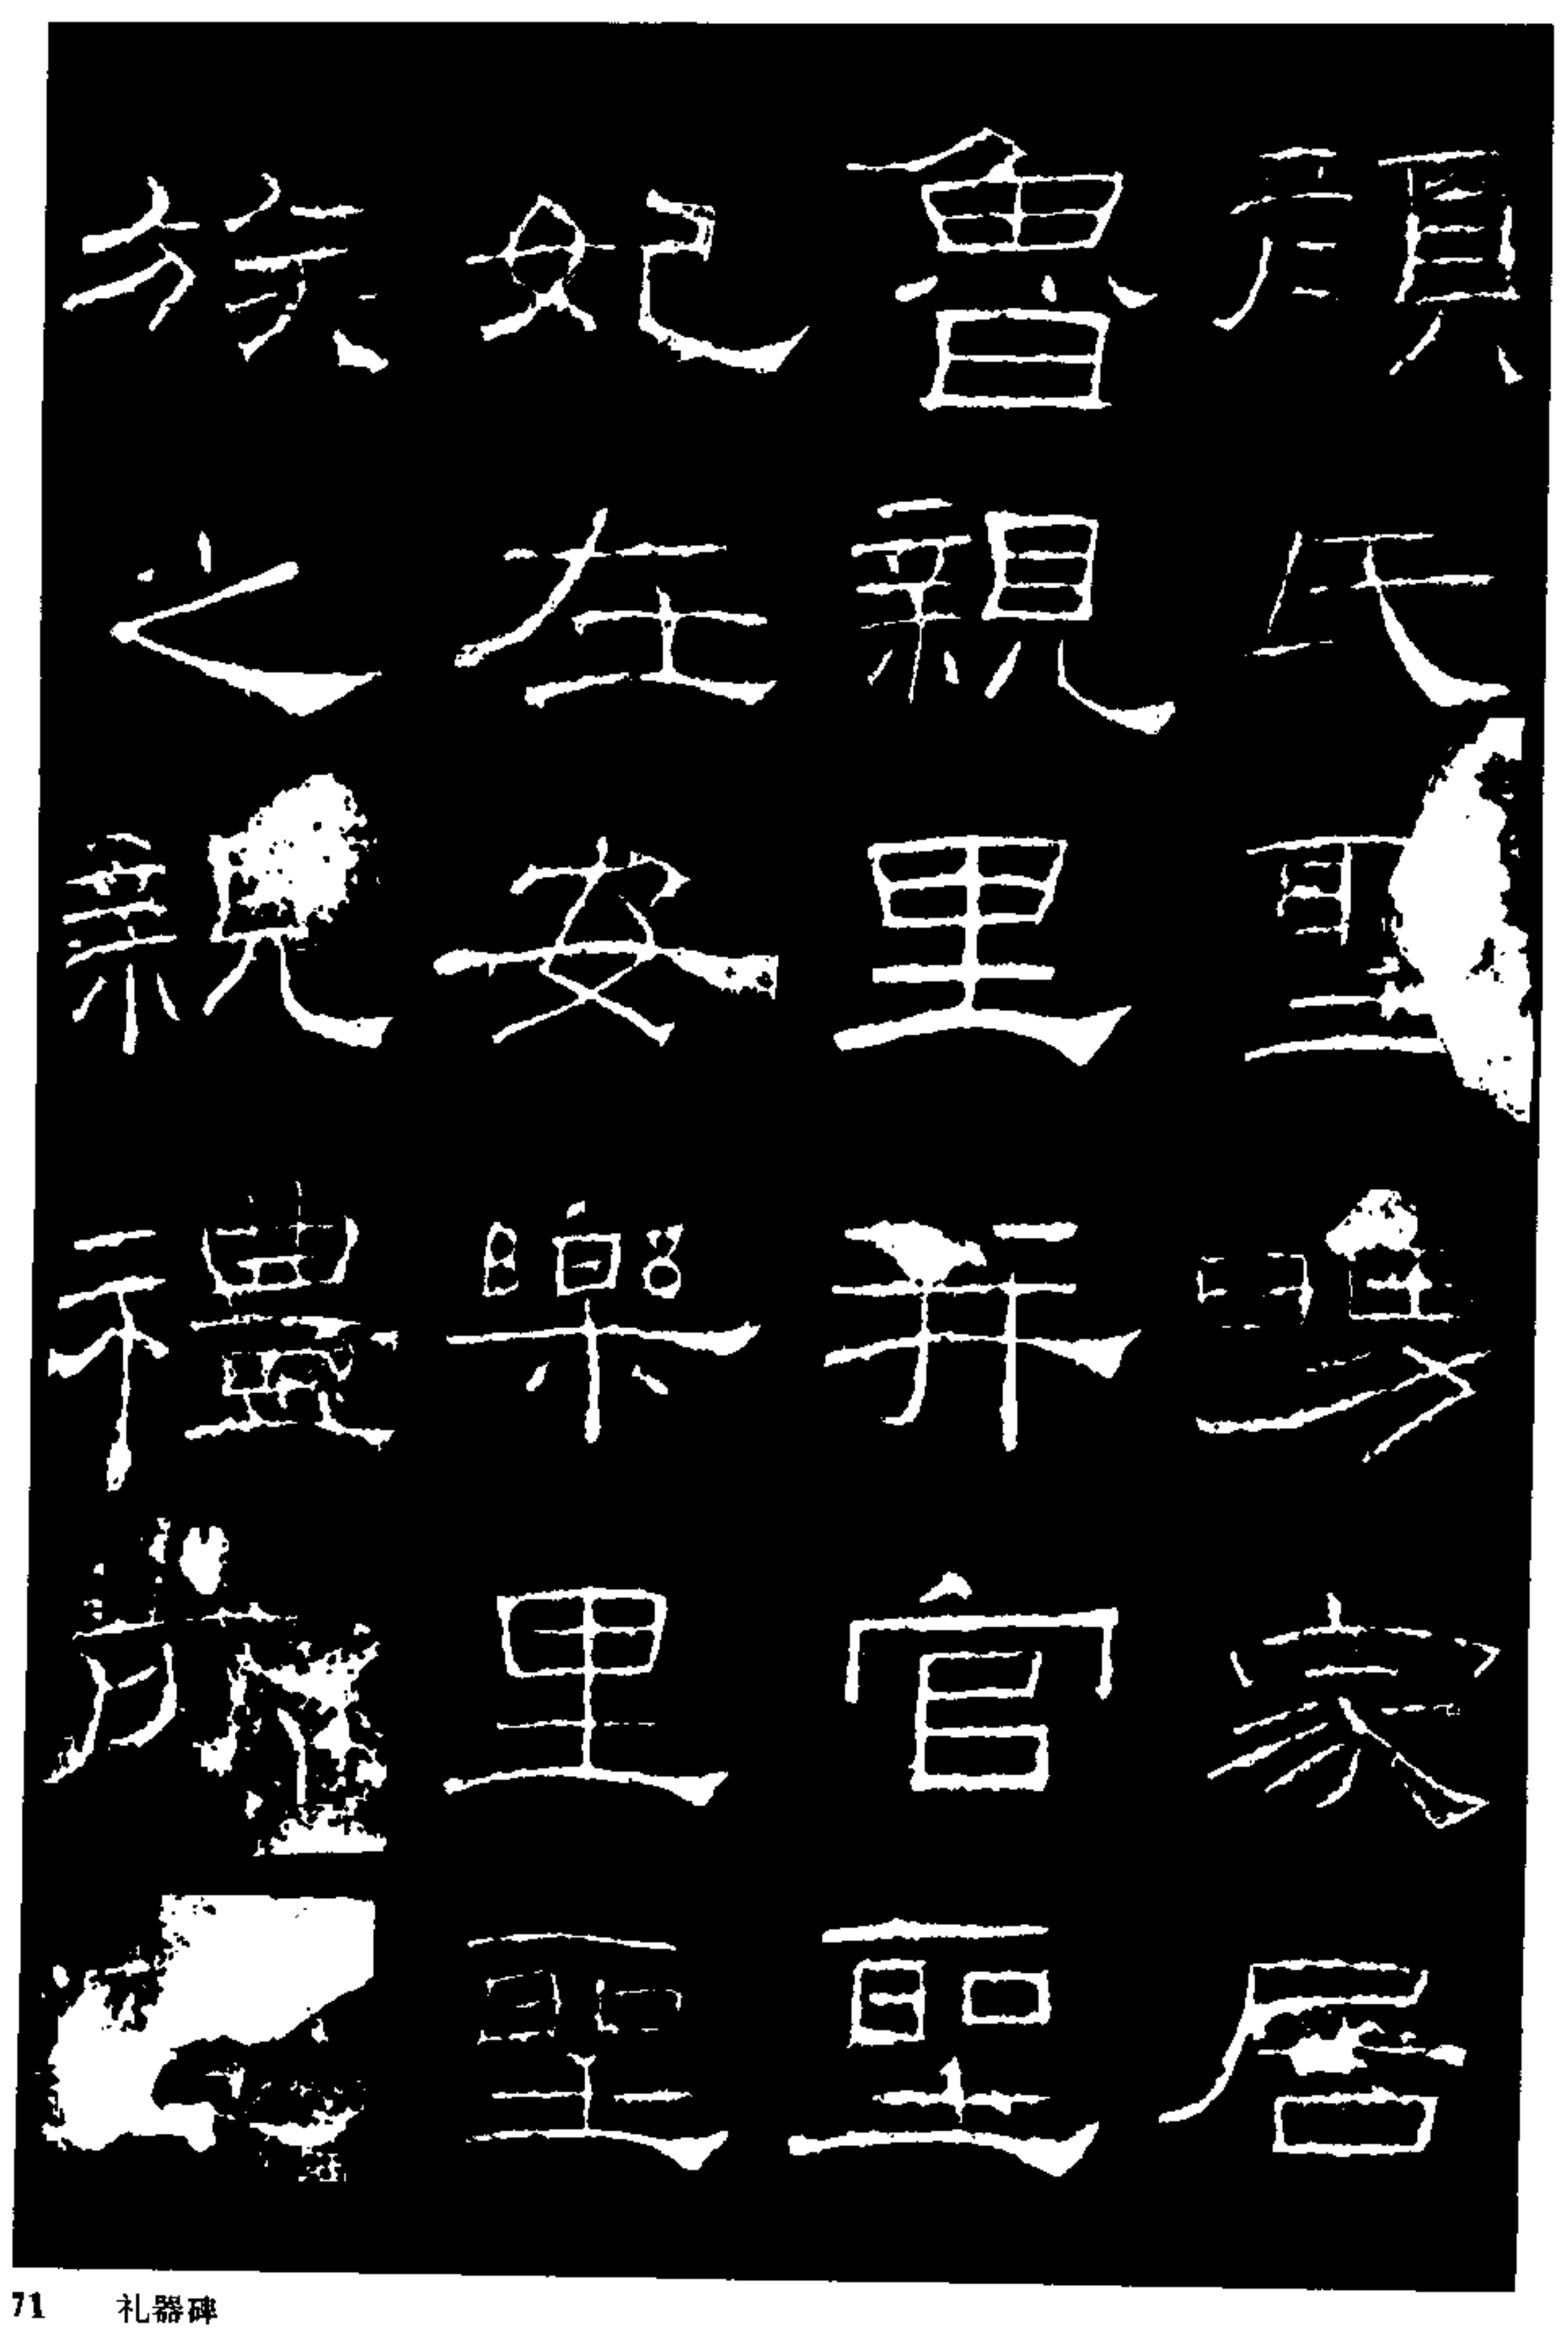 顏氏聖舅家居
魯親里并官聖
妃在安樂里聖
族之親禮所
71 礼器碑